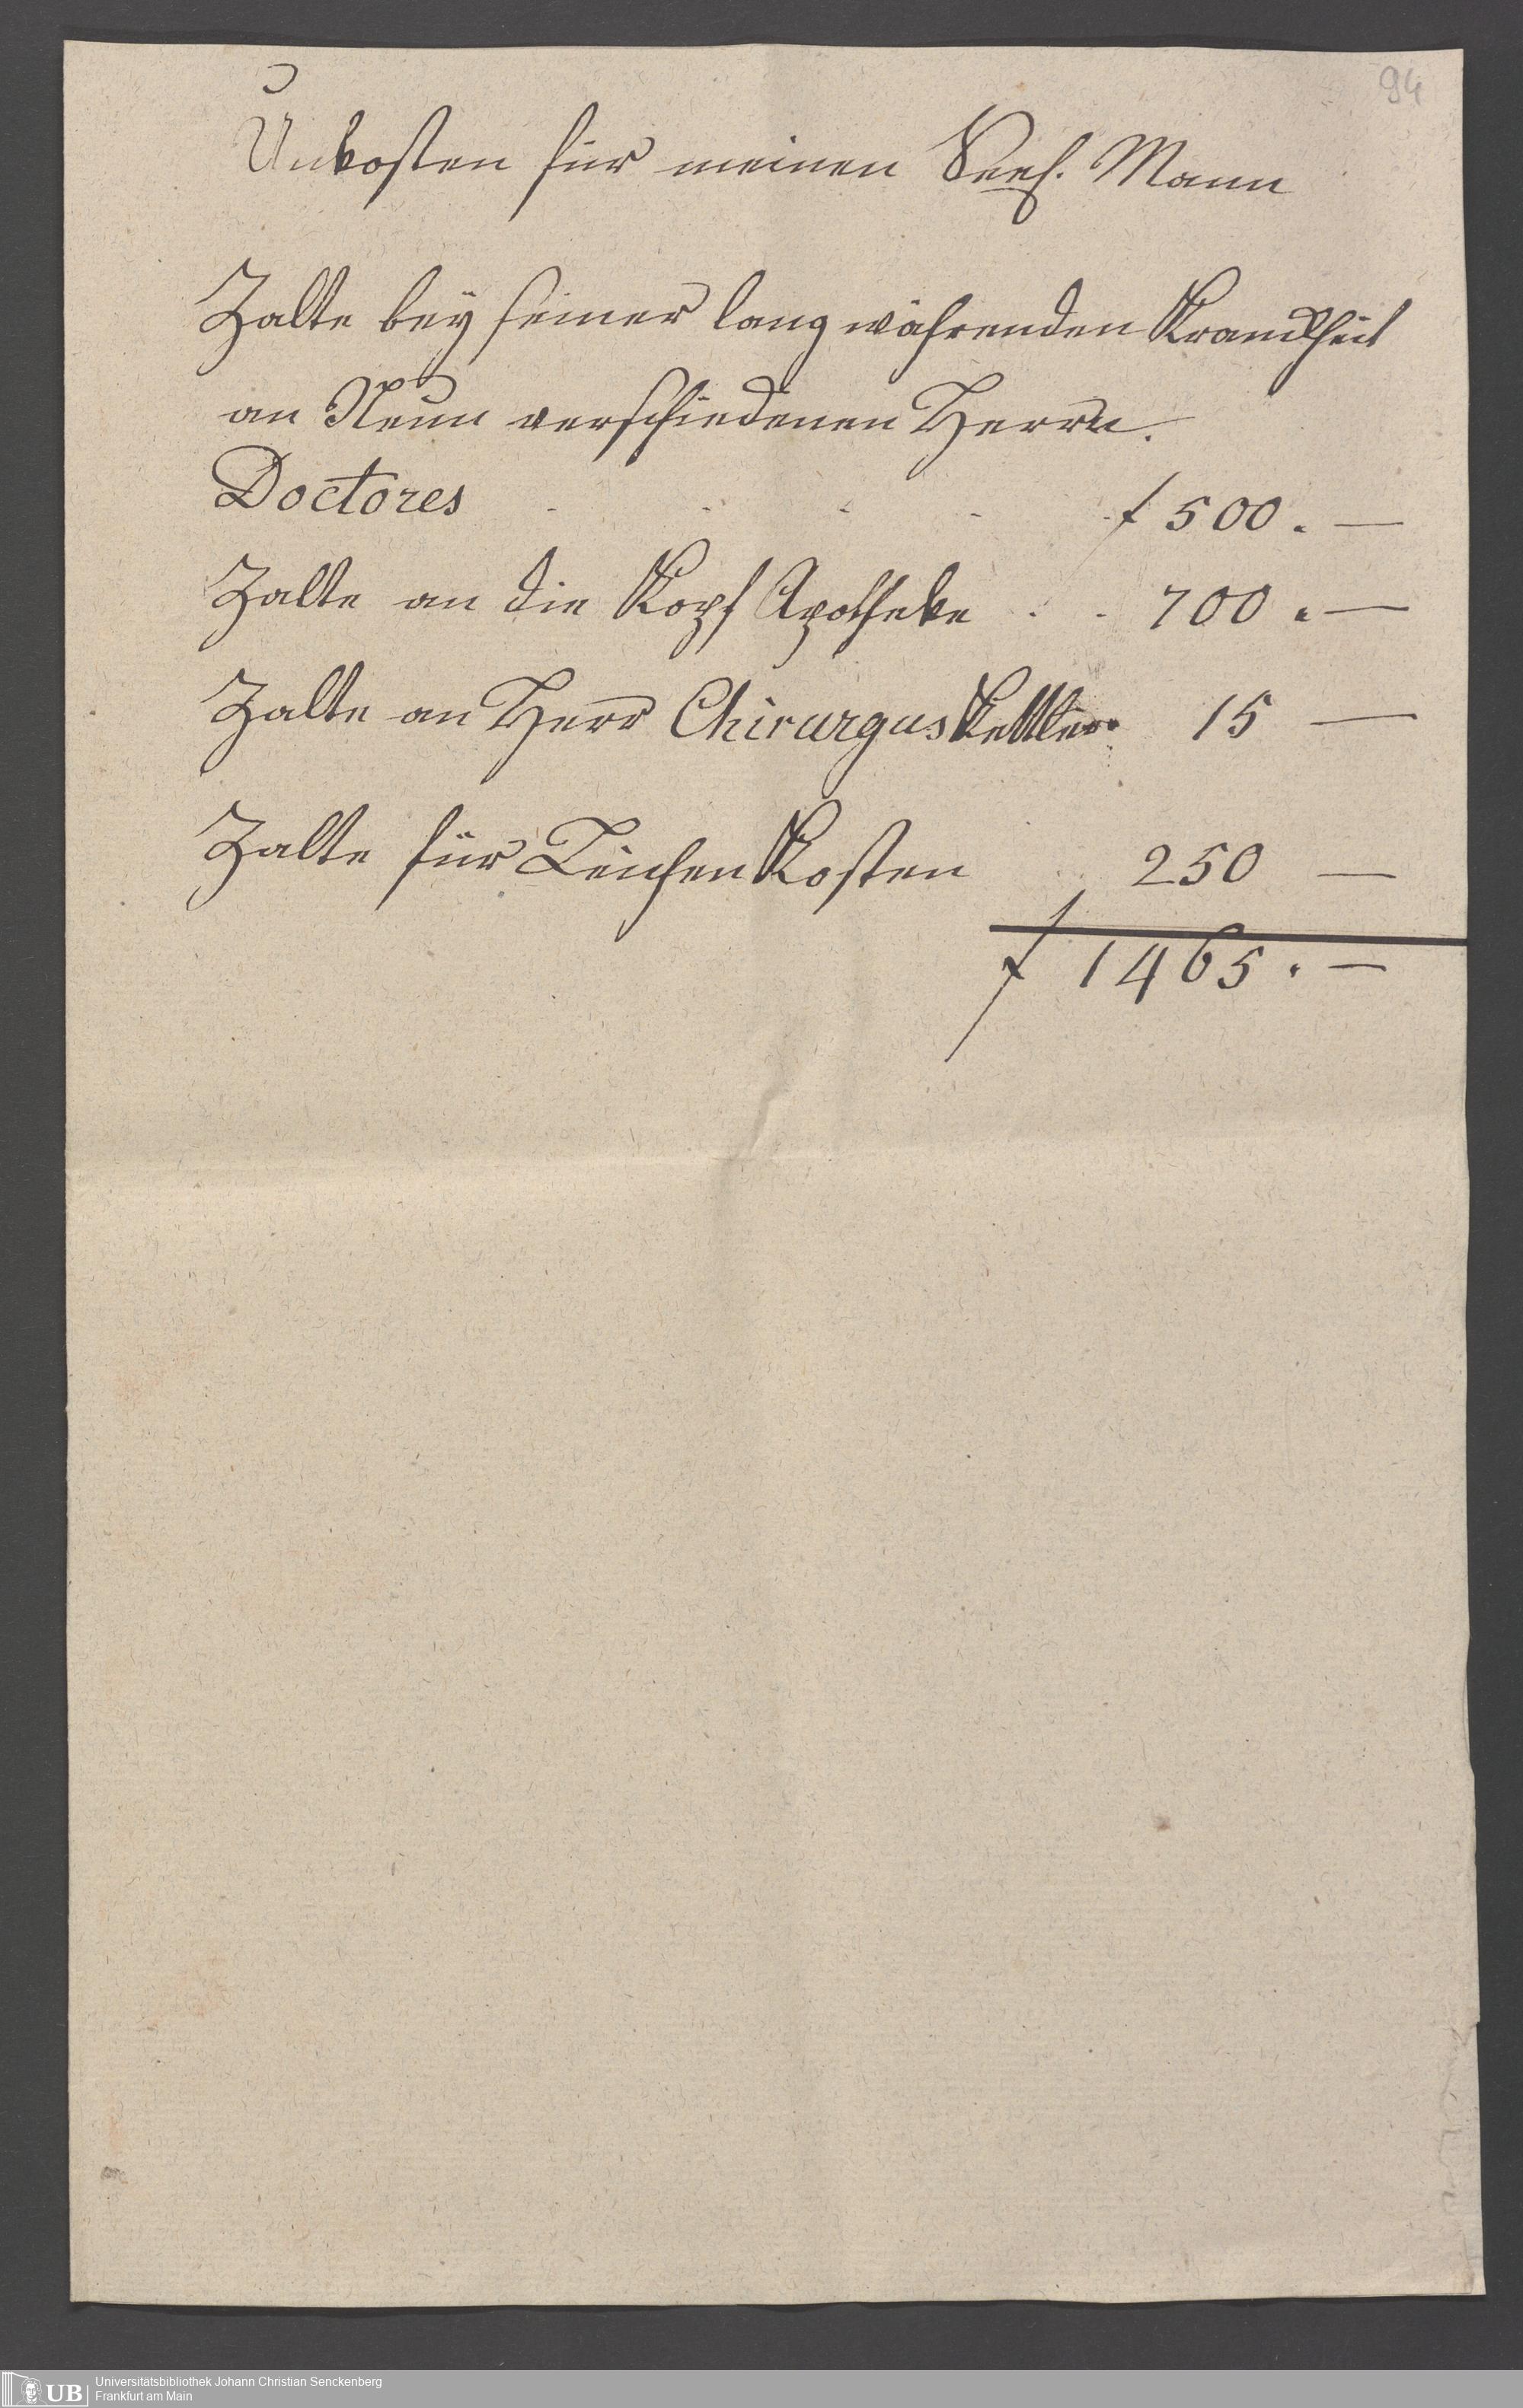 94
Unkosten für meinen Seel. Mann
Zalte bey seiner lang währenden Kranckheit
an Neun verschiedenen Herrn.
Doctores . . . . . f 500. —
Zalte an die Kopf Apotheke . . 700. —
Zalte an Herr Chirurgus Kettler 15 —
Zalte für Leichen Kosten 250 —
f 1465. —
UB
Universitätsbibliothek Johann Christian Senckenberg
Frankfurt am Main